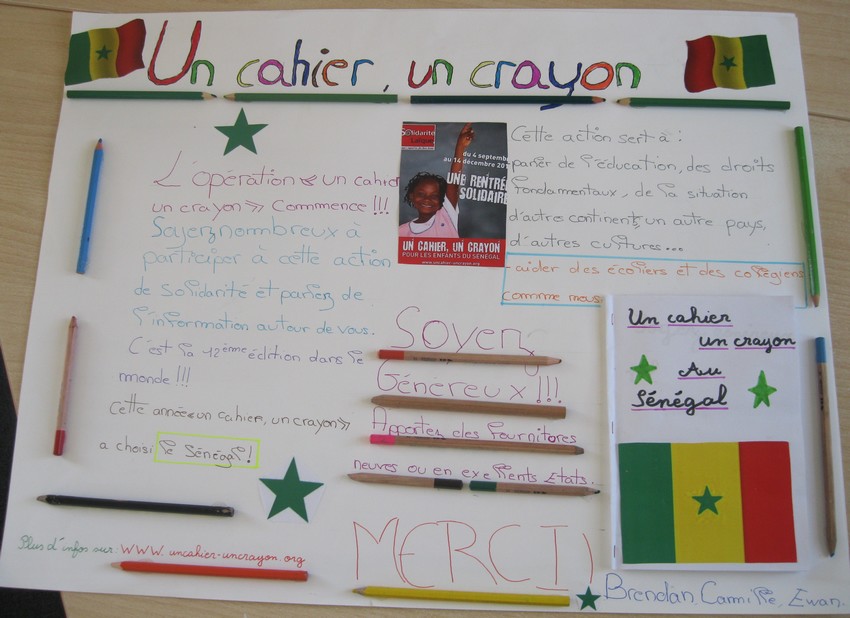 Un cahier, un crayon
L'opération « un cahier
un crayon » Commence !!!
Soyez nombreux à
participer à cette action
de solidarité et parlez de
l'information autour de vous.
C'est la 12ème édition dans le
monde !!!
Cette année « un cahier, un crayon »
a choisi le Sénégal !
Plus d'infos sur : www.uncahier-uncrayon.org
Solidarité
Laïque
du 4 septemb
au 14 décembre 201
UNE RENTRÉE
SOLIDAIRE
UN CAHIER, UN CRAYON
POUR LES ENFANTS DU SÉNÉGAL
www.uncahier-uncrayon.org
Cette action sert à :
parler de l'éducation, des droits
fondamentaux, de la situation
d'autres continents, un autre pays,
d'autres cultures...
- aider des écoliers et des collégiens
comme nous
Soyez
Généreux !!!
Apportez des fournitores
neuves ou en exellents Etats.
MERCI !
Un cahier
un crayon
Au
Sénégal
Brendan, Camille, Ewan.